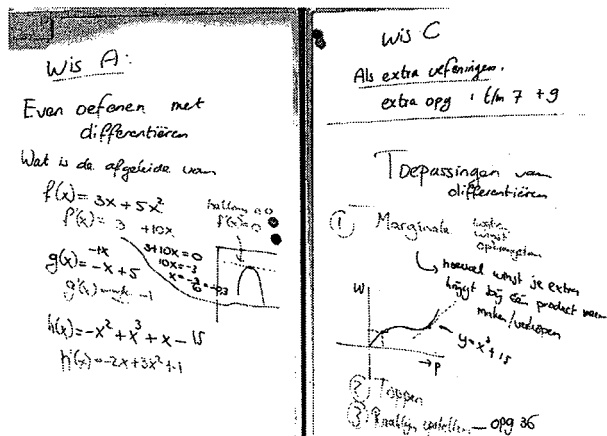 Wis A:
Even oefenen met
differentiëren
Wat is de afgeleide van
f(x) = 3x + 5x²
f'(x) = 3 + 10x
3+10x=0
10x=-3
f'(x)=0
g(x) = -x + 5
-1x
g'(x) -1
h(x) = -x² + x³ + x - 15
h'(x) = -2x + 3x² + 1
Wis C
Als extra oefeningen.
extra opg 1 t/m 7 + 9
Toepassingen van
differentiëren
① Marginale
kosten
winst
opbrengsten
hoeveel winst je extra
krijgt bij één product meer
maken/verkopen
W
y = x³ + 15
→ P
② Toppen
③ Raaklijn opstellen — opg 36